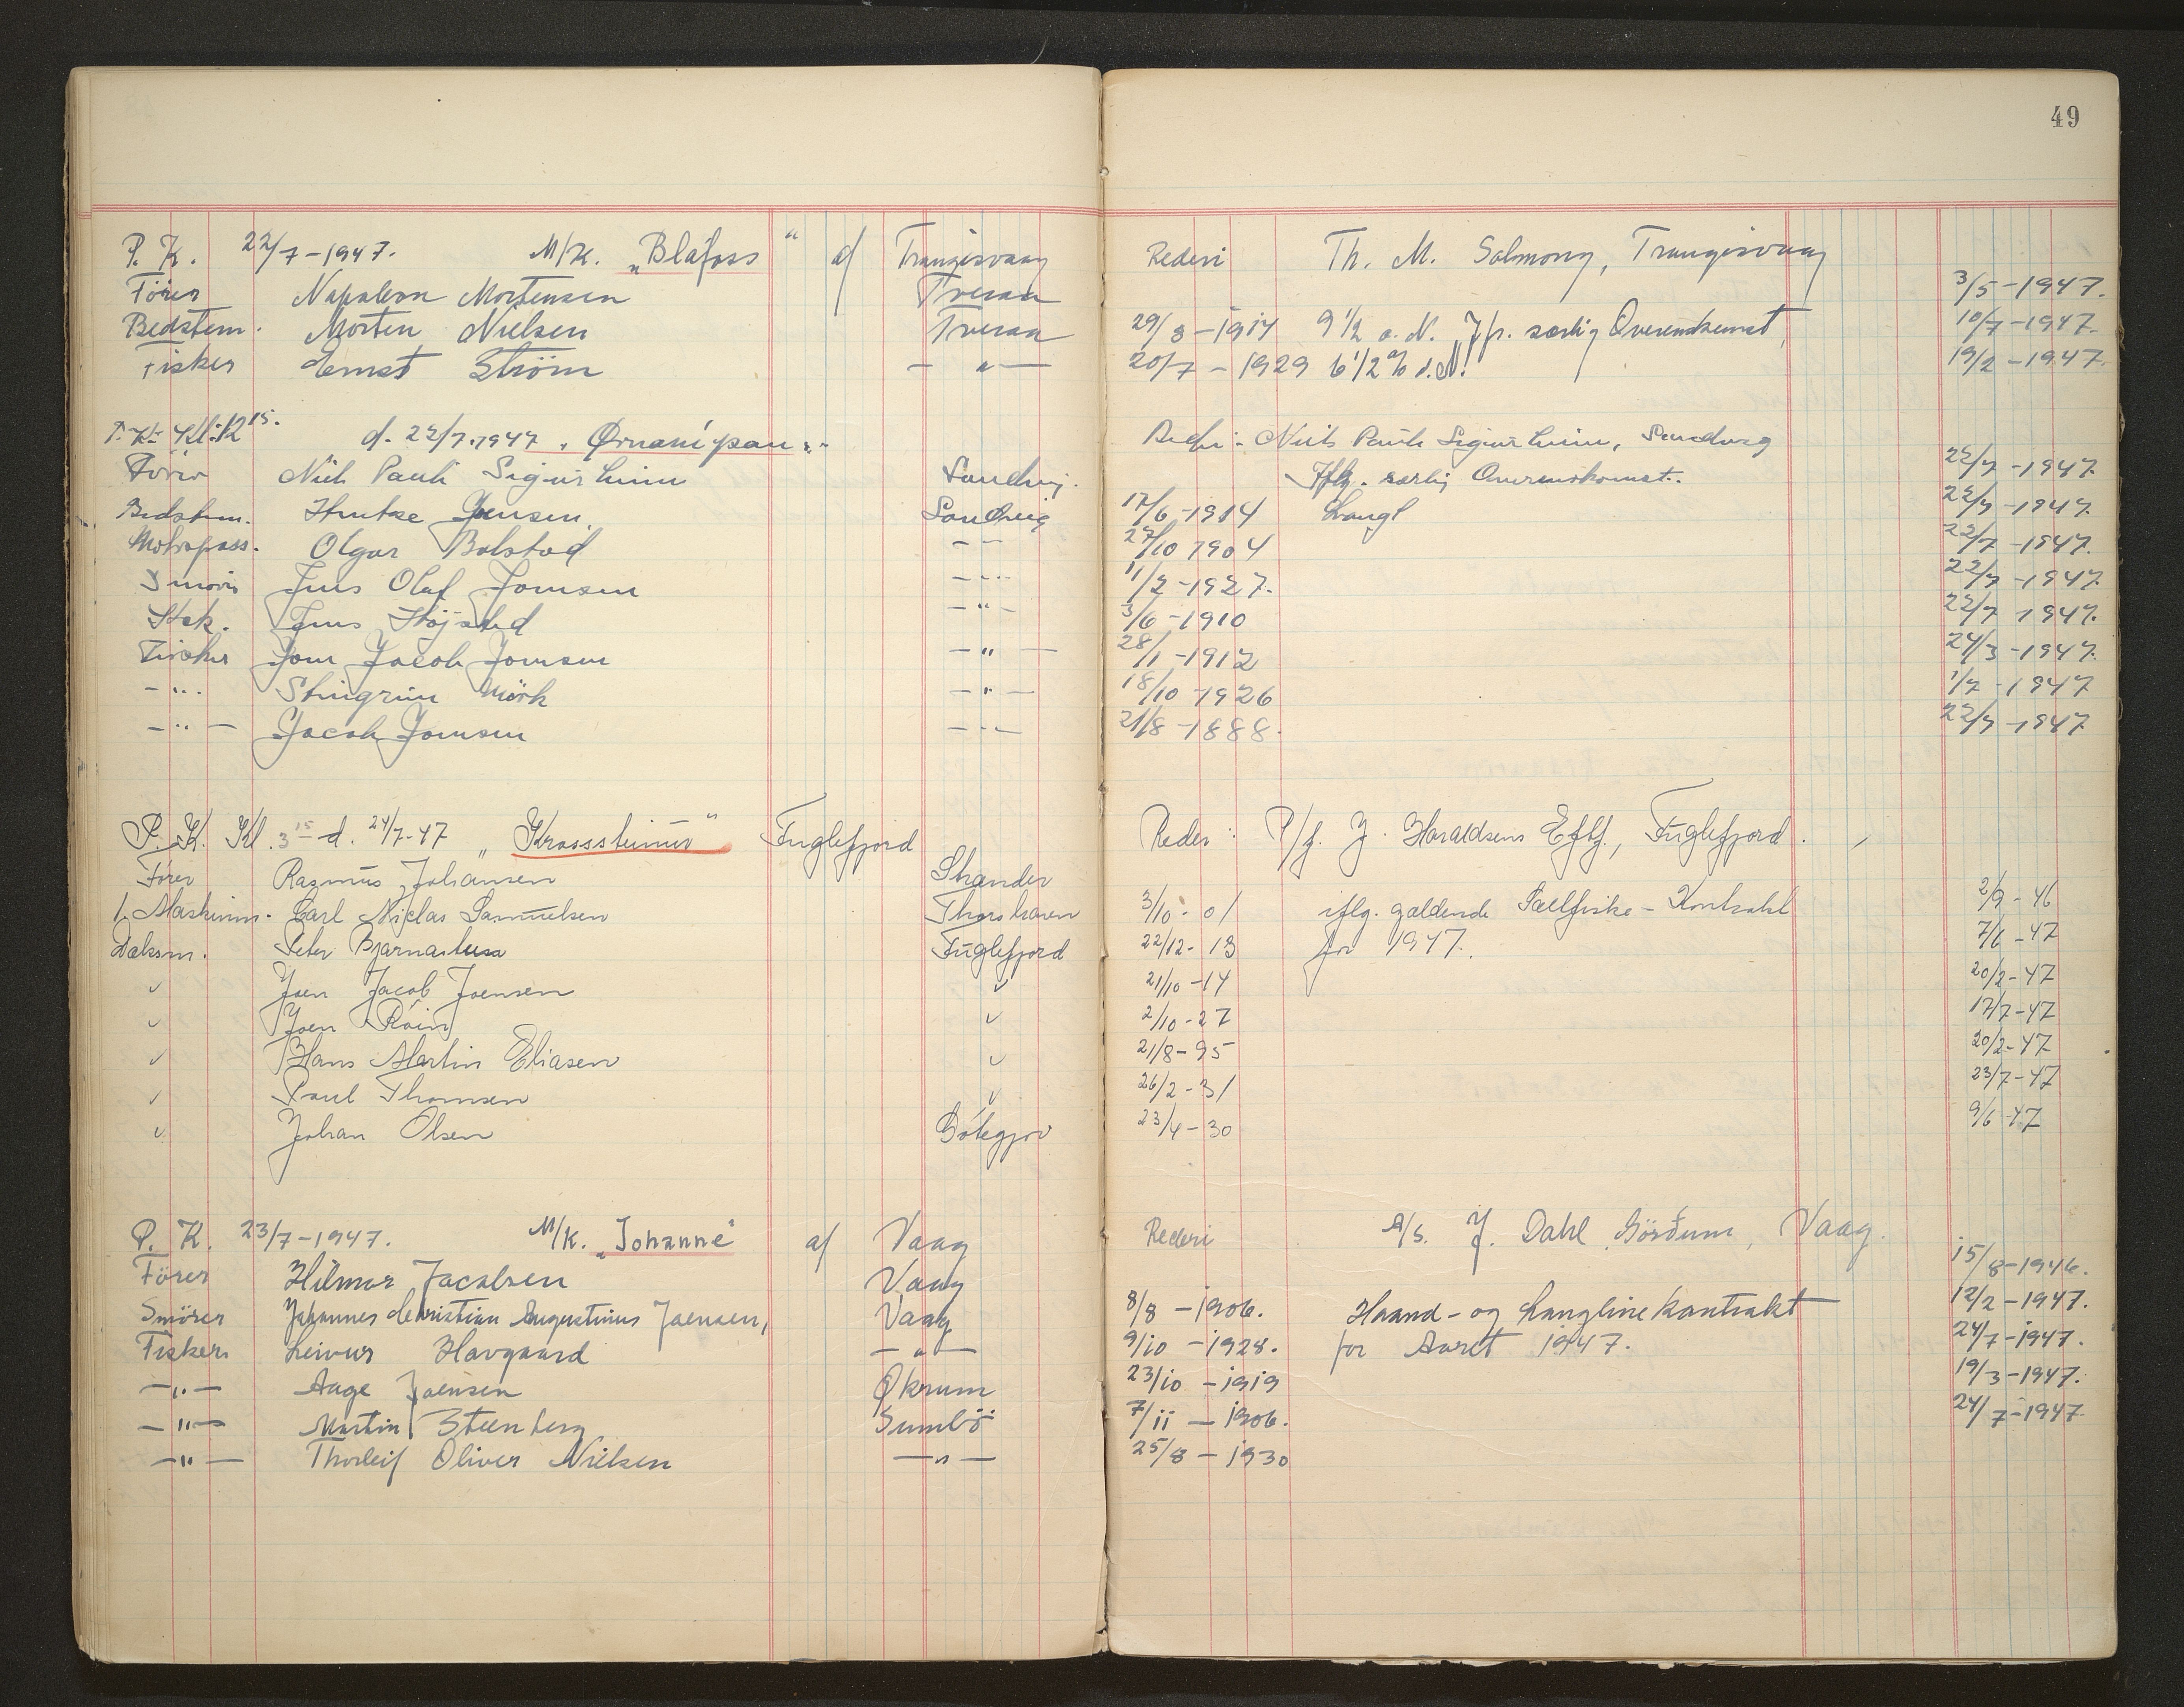 49
P. K. 22/7-1947. M/K. „Bláfoss" af Trangisvaag Rederi Th. M. Salmony, Trangisvaag
Förer Napoleon Mortensen Tveraa 3/5-1947.
Bedstem. Morten Nielsen Tveraa 29/8-1914 9 1/2 o. N. Jfr. særlig Overenskomst, 10/7-1947.
Fisker Ernst Ström — " — 20/7-1929 6 1/2 % d. N. 19/2-1947.
P. K. Kl. 12 15. d. 22/7.1947 „Ørnanípan" Rederi: Niels Pauli Sigurs heim, Sandvig
Förer Niels Pauli Sigurs heim Sandvig. Iflg. særlig Overenskomst. 22/7-1947.
Bedstem. Jensen. Sandvig 17/6-1914 Langl 22/7-1947.
Motorpass. Olgar Bolstad — " — 27/10 1904 22/7-1947.
Smörer Jens Olaf Joensen — " — 11/2-1927. 22/7-1947.
Kok. Jens Höjsted — " — 3/6-1910 22/7 1947.
Fisker Joen Jacob Joensen — " — 28/1-1912 24/3-1947.
— " — Steingrim Mörk — " — 18/10-1926 1/7-1947
— " — Jacob Joensen — " — 21/8-1888. 22/7-1947.
P. K. Kl. 3 15 d. 24/7-47 „Krosssteinur" Fuglefjord Reder: P/f. J. Haraldsens Eftf., Fuglefjord.
Förer Rasmus Johansen Strander
1. Maskinm. Carl Niclas Samuelsen Thorshavn 3/10-01 iflg. gældende Saltfiske-Kontrakt 2/9-46
Dæksm. Peter Bjarnastein Fuglefjord 22/12-13 for 1947. 7/6-47
✓ Joen Jacob Joensen ✓ 21/10-14 20/2-47
✓ Joen Róin ✓ 2/10-27 17/7-47
✓ Hans Martin Eliasen ✓ 21/8-95 20/2-47
✓ Paul Thomsen ✓ 26/2-31 23/7-47
✓ Johan Olsen Götegjov 23/4-30 9/6-47
P. K. 23/7-1947. M/K. „Johanne" af Vaag Rederi A/S. J. Dahl, Görðum, Vaag.
Förer Hilmar Jacobsen Vaag 15/8-1946.
Smörer Johannes Christian Augustinus Joensen, Vaag 8/8-1906. Haand- og Langlinekontrakt 12/2-1947.
Fisker Leivur Havgaard — " — 9/10-1928. for Aaret 1947. 24/7-1947.
— " — Aage Joensen Økrum 23/10-1919 19/3-1947.
— " — Martin Steenberg Sumbö 7/11-1906. 24/7-1947.
— " — Thorleif Oliver Nielsen — " — 25/8-1930